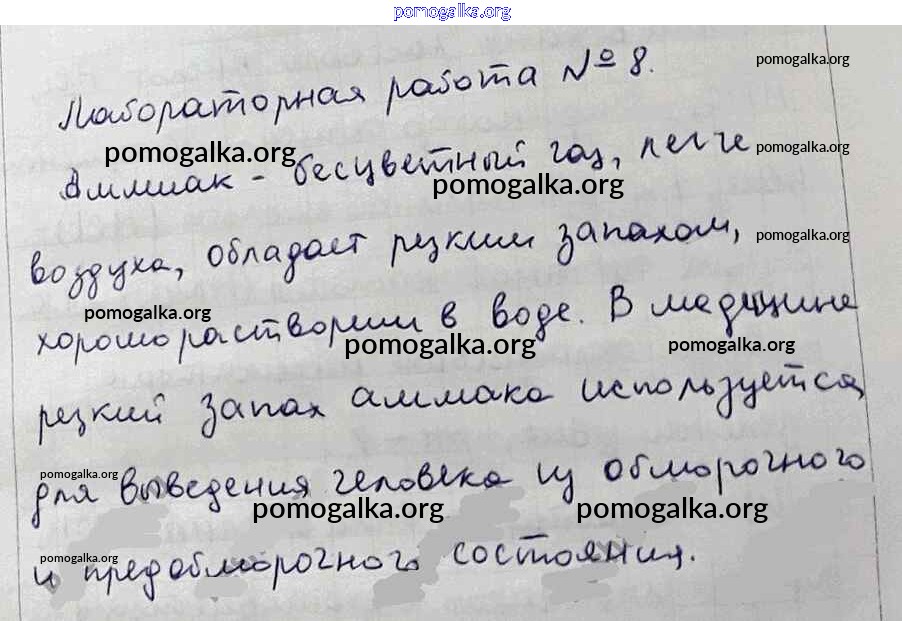 pomogalka.org
Лабораторная работа №8.
pomogalka.org
Аммиак - бесцветный газ, легче
pomogalka.org
pomogalka.org
pomogalka.org
воздуха, обладает резким запахом,
pomogalka.org
pomogalka.org
хорошо растворим в воде. В медицине
pomogalka.org
pomogalka.org
резкий запах аммиака используется
pomogalka.org
для выведения человека из обморочного
pomogalka.org
pomogalka.org
pomogalka.org
и предобморочного состояния.